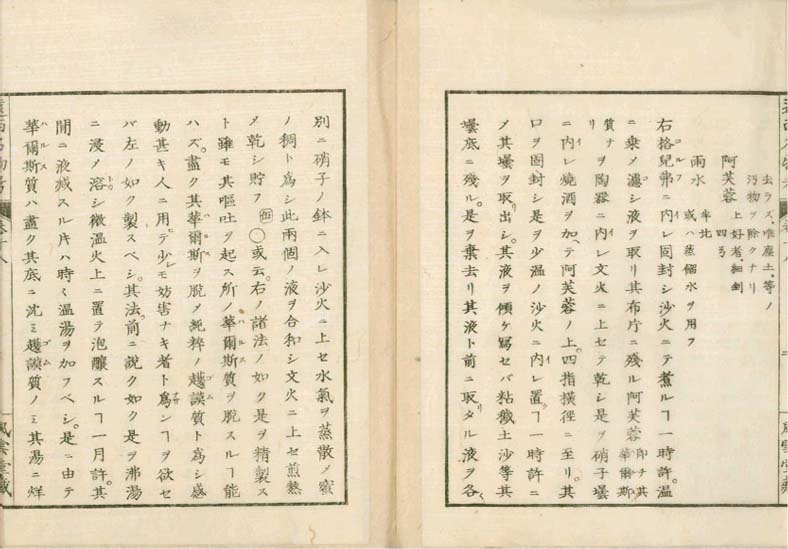 去ラズ。唯塵土。等ノ
汚物ヲ除クナリ
阿芙蓉 上好者。細剉 四弓
雨水 年北 或ハ蒸餾水ヲ用フ
右格兒弗ニ内レ固封シ沙火ニテ煮ルヿ一時許。温
ニ乗メ濾シ液ヲ取リ其布片ニ殘ル阿芙蓉 即チ其華爾斯
質ナリ ヲ陶器ニ内レ文火ニ上セテ乾シ是ヲ硝子壜
ニ内レ燒酒ヲ加ヘテ阿芙蓉ノ上。四指橫徑ニ至リ。其
口ヲ固封シ是ヲ少温ノ沙火ニ内レ置ヿ一時許ニ
メ其壜ヲ取出シ。其液ヲ傾ケ寫セバ粘穢土沙等其
壜底ニ殘ル。是ヲ棄去リ其液ト前ニ取タル液ヲ各
別ニ硝子ノ鉢ニ入レ沙火ニ上セ水氣ヲ蒸散メ蜜
ノ稠ト爲シ此兩個ノ液ヲ合和シ文火ニ上セ煎熬
メ乾シ貯フ 〇或云。右ノ諸法ノ如ク是ヲ精製ス
ト雖モ其嘔吐ヲ起ス所ノ華爾斯質ヲ脱スルヿ能
ハズ。盡ク其華爾斯ヲ脱メ純粹ノ護謨質ト爲シ感
動甚キ人ニ用テ少シモ妨害ナキ者ト爲サンヿヲ欲セ
バ左ノ如ク製スベシ。其法。前ニ説ク如ク是ヲ沸湯
ニ浸メ溶シ微温火上ニ置テ泡釀スルヿ一月許。其
間ニ液減スル片ハ時々温湯ヲ加フベシ。是ニ由テ
華爾斯質ハ盡ク其底ニ沈ミ護謨質ノミ其湯ニ烊
卷十八
風雲堂藏